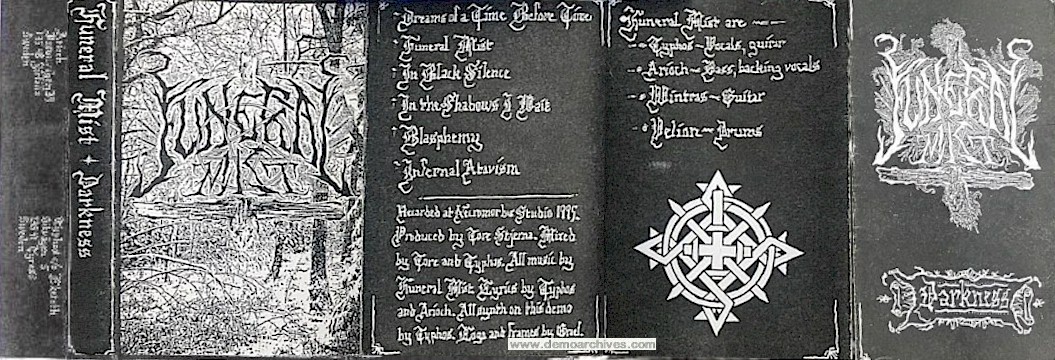 Funeral Mist + Darkness
FUNERAL
MIST
Dreams of a Time Before Time
Funeral Mist
In Black Silence
In the Shadows I Wait
Blasphemy
Infernal Atavism
Recorded at Necromorbus Studio 1995.
Produced by Tore Stjerna. Mixed
by Tore and Typhos. All music by
Funeral Mist. Lyrics by Typhos
and Arioch. All synth on this demo
by Typhos. Logo and frames by
Funeral Mist are
Typhos - Vocals, guitar
Arioch - Bass, backing vocals
Mintras - Guitar
Velion - Drums
FUNERAL
MIST
Darkness
www.demoarchives.com